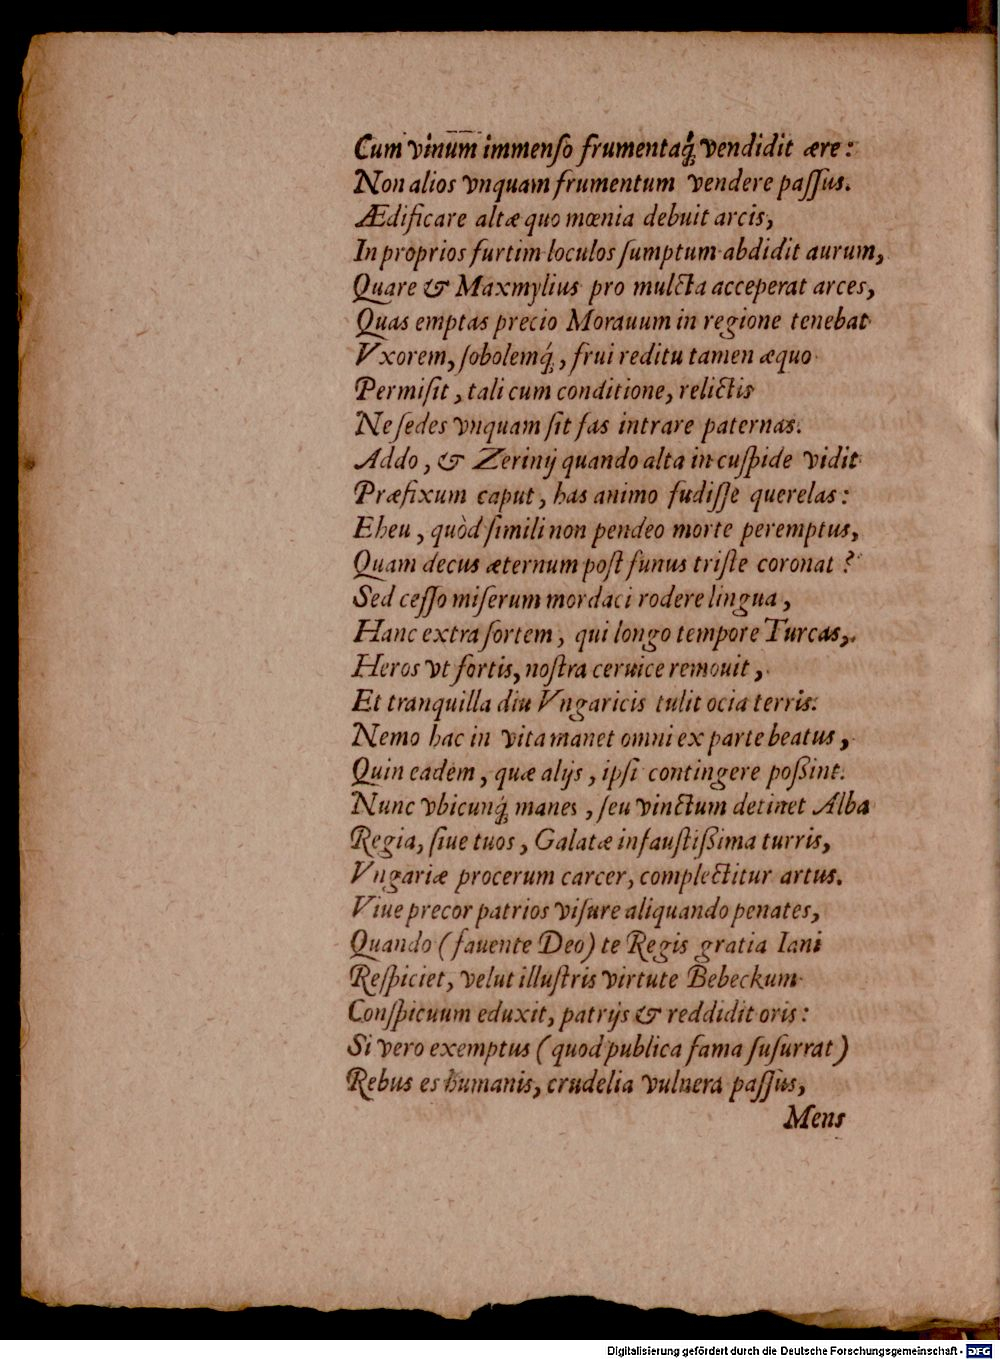 Cum vinum immenſo frumentaq́; vendidit ære:
Non alios vnquam frumentum vendere paſſus.
Ædificare altæ quo mœnia debuit arcis,
In proprios furtim loculos ſumptum abdidit aurum,
Quare & Maxmylius pro mulcta acceperat arces,
Quas emptas precio Morauum in regione tenebat
Vxorem, ſobolemq́;, frui reditu tamen æquo
Permiſit, tali cum conditione, relictis
Ne ſedes vnquam ſit fas intrare paternas.
Addo, & Zerinij quando alta in cuſpide vidit
Præfixum caput, has animo fudiſſe querelas:
Eheu, quòd ſimili non pendeo morte peremptus,
Quam decus æternum poſt funus triſte coronat?
Sed ceſſo miſerum mordaci rodere lingua,
Hanc extra ſortem, qui longo tempore Turcas,
Heros vt fortis, noſtra ceruice remouit,
Et tranquilla diu Vngaricis tulit ocia terris.
Nemo hac in vita manet omni ex parte beatus,
Quin eadem, quæ alijs, ipſi contingere poßint.
Nunc vbicunq́; manes, ſeu vinctum detinet Alba
Regia, ſiue tuos, Galatæ infauſtißima turris,
Vngariæ procerum carcer, complectitur artus.
Viue precor patrios viſure aliquando penates,
Quando (fauente Deo) te Regis gratia Iani
Reſpiciet, velut illuſtris virtute Bebeckum
Conſpicuum eduxit, patrijs & reddidit oris:
Si vero exemptus (quod publica fama ſuſurrat)
Rebus es humanis, crudelia vulnera paſſus,
Mens
Digitalisierung gefördert durch die Deutsche Forschungsgemeinschaft - DFG